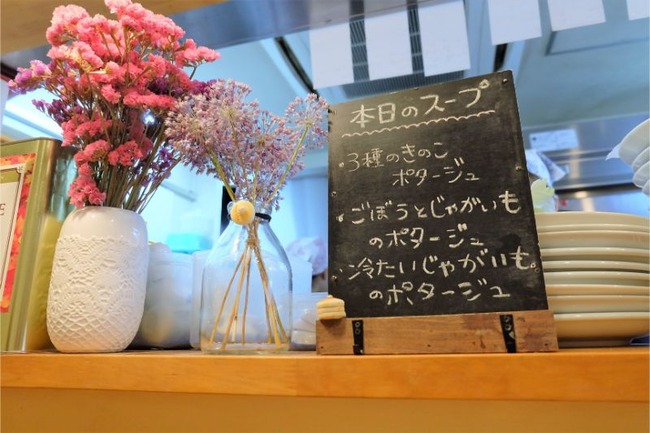 本日のスープ
・3種のきのこ
ポタージュ
・ごぼうとじゃがいも
のポタージュ
・冷たいじゃがいも。
のポタージュ